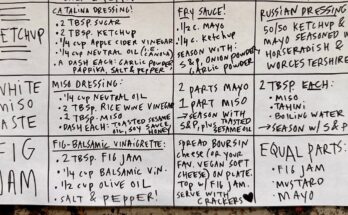 KETCHUP
CATALINA DRESSING:
• 2 TBSP. SUGAR
• 2 TBSP. KETCHUP
• 1/4 CUP APPLE CIDER VINEGAR
• 1/4 CUP NEUTRAL OIL (CANOLA)
• A DASH EACH: GARLIC POWDER,
PAPRIKA, SALT & PEPPER!
FRY SAUCE!
• 1/2 C. MAYO
• 1/4 C. KETCHUP
SEASON WITH:
S&P, ONION POWDER,
GARLIC POWDER
RUSSIAN DRESSING
50/50 KETCHUP &
MAYO SEASONED W/
HORSERADISH &
WORCESTERSHIRE
WHITE
MISO
PASTE
MISO DRESSING:
• 1/4 CUP NEUTRAL OIL
• 2 TBSP. RICE WINE VINEGAR
• 2 TBSP. MISO
• DASH EACH: TOASTED SESAME
OIL, SOY SAUCE,
HONEY
2 PARTS MAYO
1 PART MISO
→ SEASON WITH
S&P, plus TOASTED
SESAME OIL
2 TBSP. EACH:
• MISO
• TAHINI
• BOILING WATER
→ SEASON W/ S&P
FIG
JAM
FIG-BALSAMIC VINAIGRETTE:
• 2 TBSP. FIG JAM
• 1/4 CUP BALSAMIC VIN.
• 1/2 CUP OLIVE OIL
• SALT & PEPPER!
SPREAD BOURSIN
CHEESE (OR YOUR
FAV. VEGAN SOFT
CHEESE) ON PLATE.
TOP W/ FIG JAM.
SERVE WITH
CRACKERS ♥
EQUAL PARTS:
• FIG JAM
• MUSTARD
• MAYO